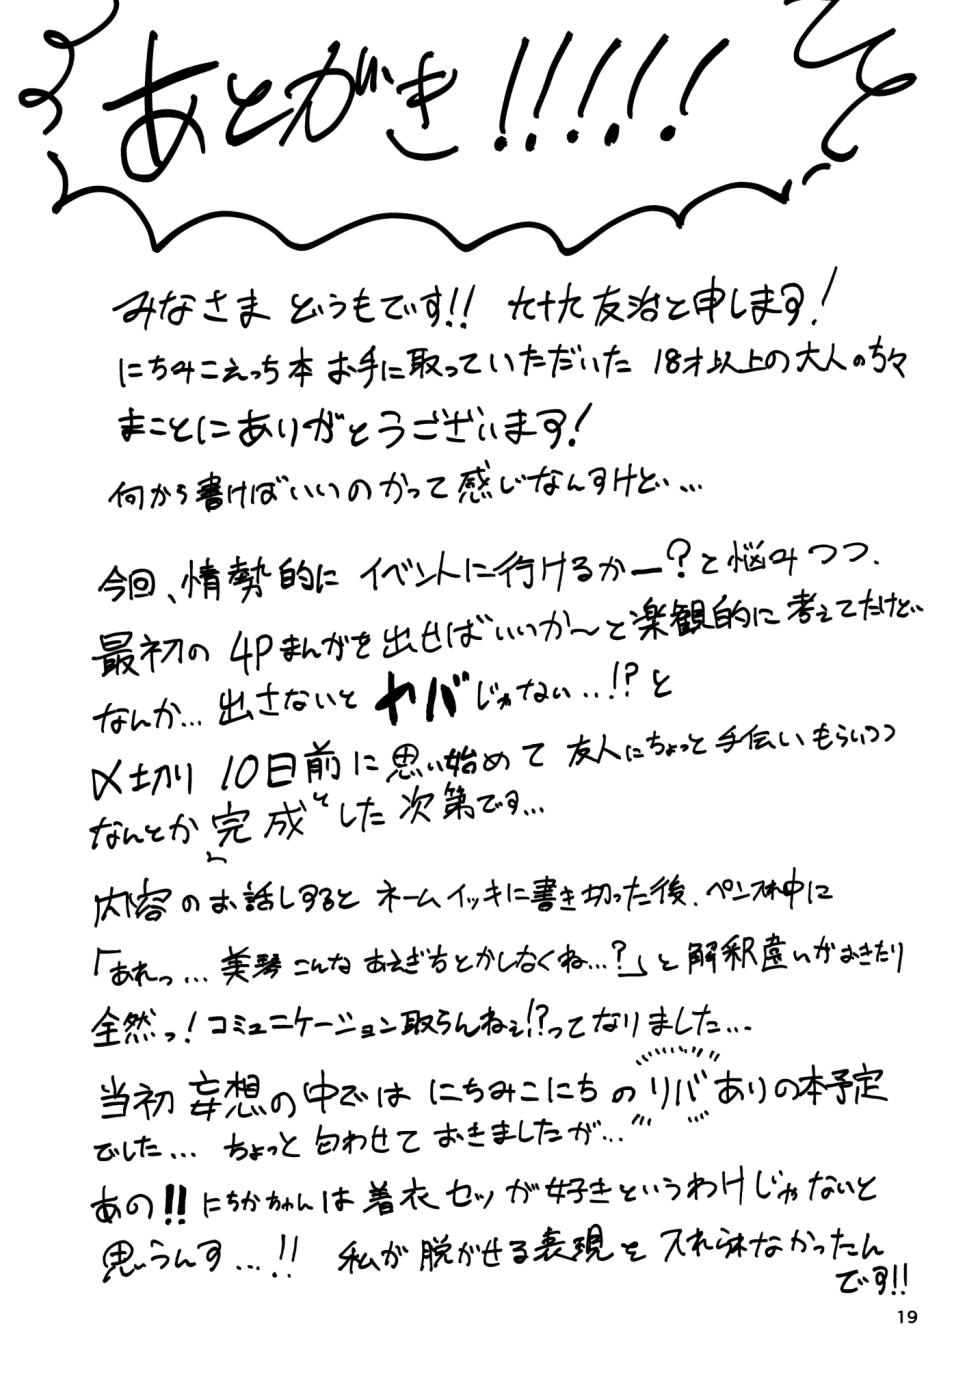 あとがき!!!!!
みなさま どうもです!! 九十九友治と申します!
にちみこえっち本 お手に取っていただいた 18才以上の大人の方々
まことにありがとうございます!
何から書けばいいのかって感じなんすけど…
今回、情勢的に イベントに行けるかー?と悩みつつ、
最初の 4Pまんがを出せばいいか〜と楽観的に考えてたけど…
なんか… 出さないと ヤバじゃない…!?と
〆切り 10日前に思い始めて 友人にちょっと手伝いもらいつつ
なんとか「完成」とした次第です…
内容のお話しすると ネームイッキに書き切った後、ペン入れ中に
「あれっ… 美琴こんな あえぎ方とかしなくね…?」と解釈違いがおきたり
全然っ!コミュニケーション取らんねぇ!?ってなりました…
当初 妄想の中では にちみこにちの リバ ありの本予定
でした… ちょっと匂わせて おきましたが…
あの!! にちかちゃんは着衣セッが好きというわけじゃないと
思うんす…!! 私が脱がせる表現を入れられなかったん
です!!
19